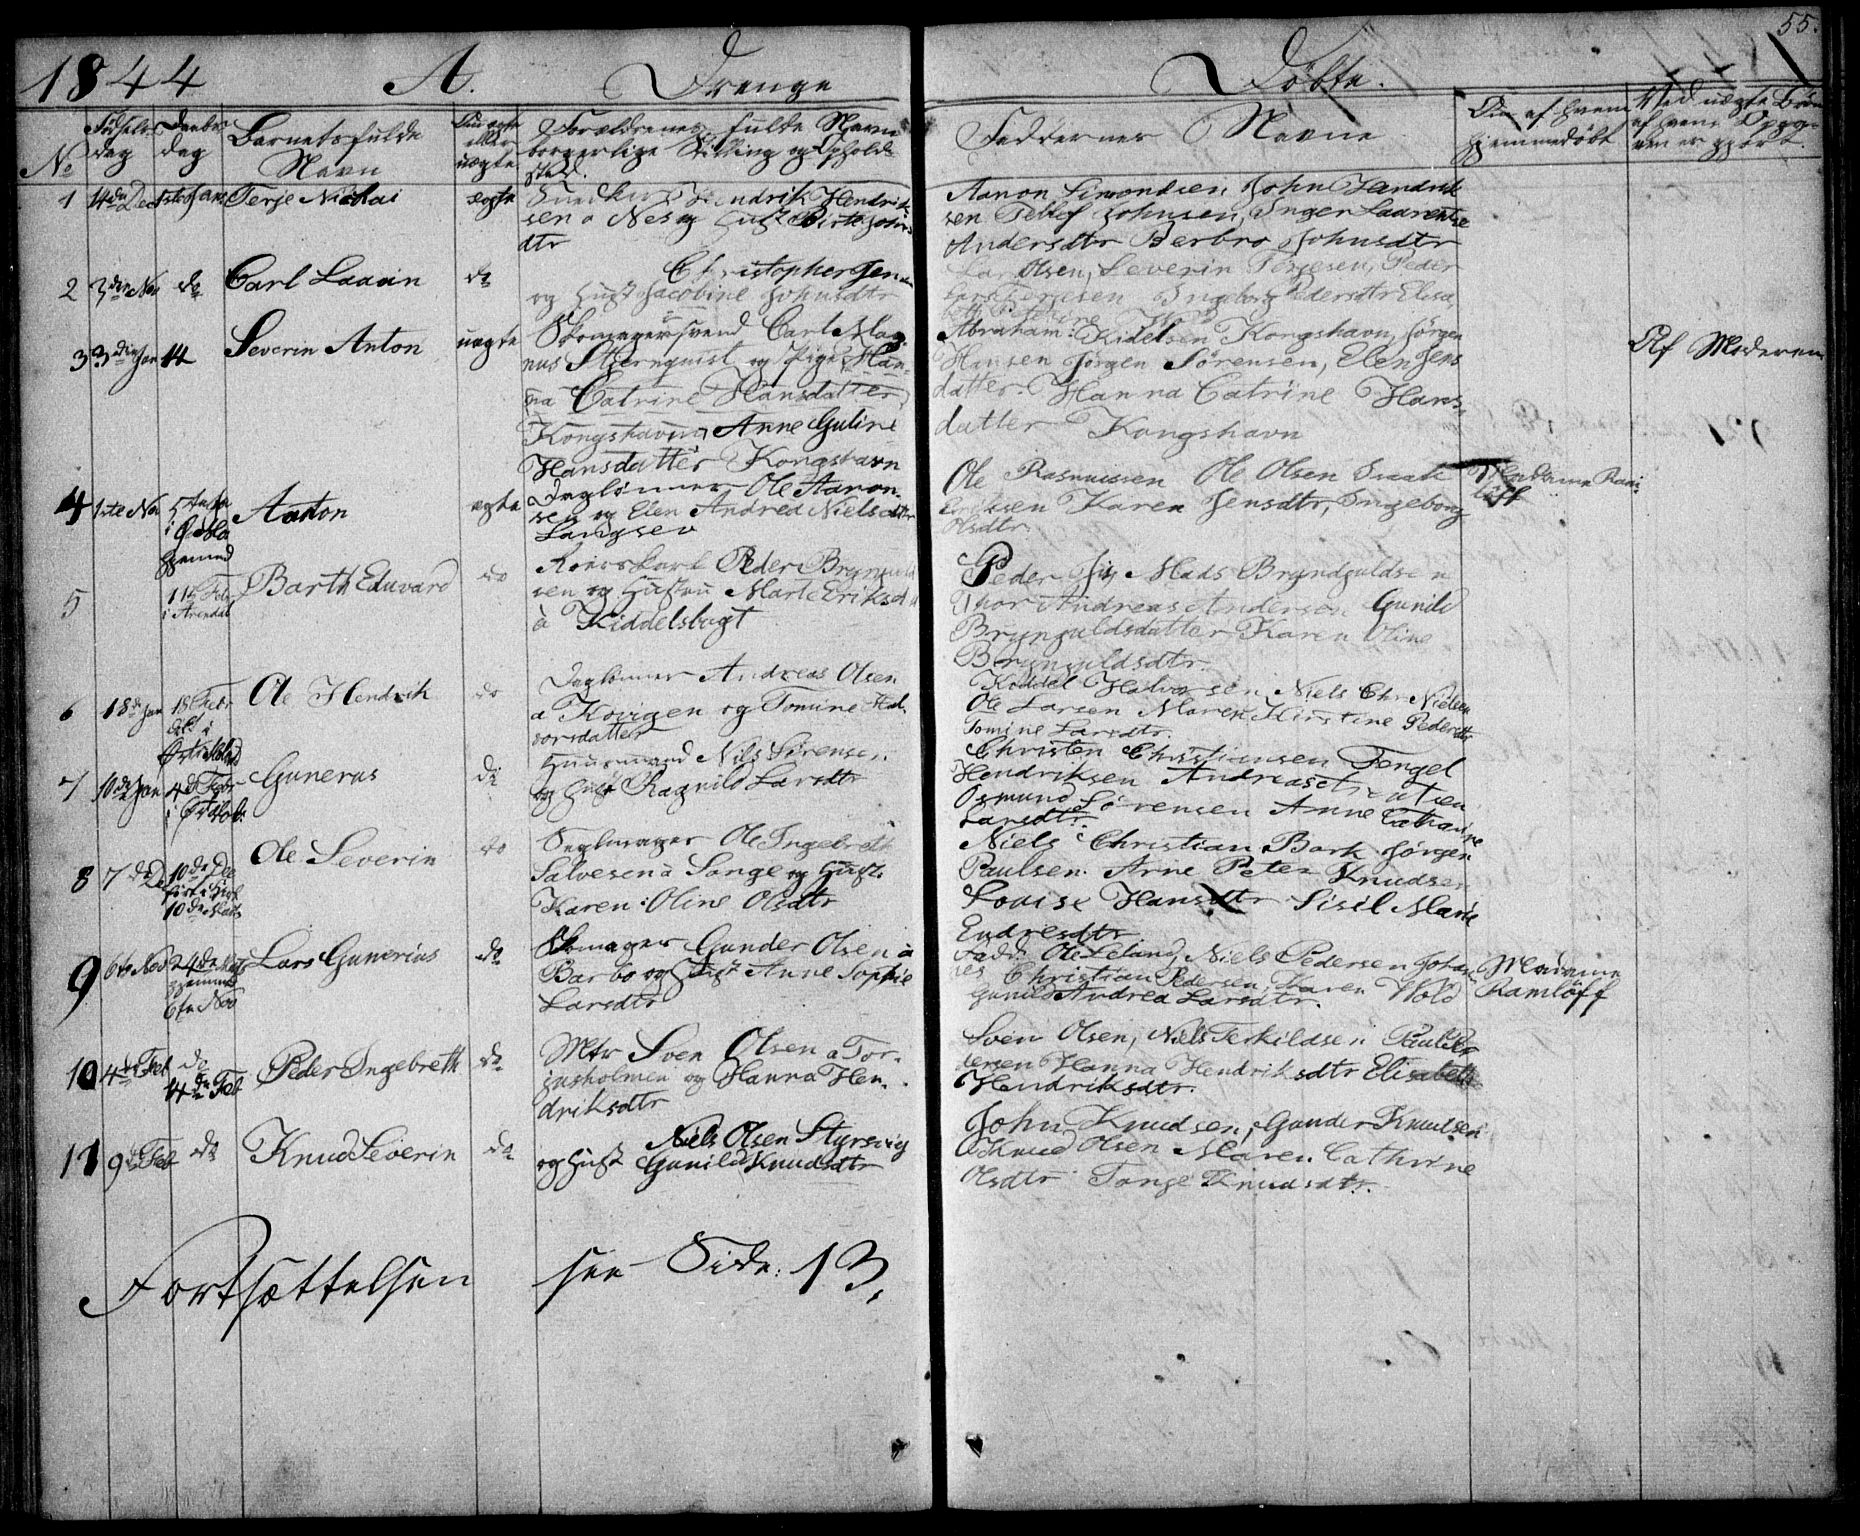 55.
1844 A. Drenge Døbte.
No
Fødsels
dag
Daabs
dag
Barnets fulde
Navn
Om ægte
eller
uægte
Forældrenes fulde Navn
borgerlige Stilling og Opholds
sted.
Faddernes Navne
Om af hvem
hjemmedøbt
Ved uægte Børn
af hvem Opgi-
ven er gjort.
1 14de Dec 1ste Jan Terje Nicolai ægte Snedker Hendrik Hendrik
sen a Nes og Hust Birte John
dtr
Aanon Simondsen John Hendrik
sen Tellef Johnsen, Inger Laurentse
Andersdtr Berbro Johnsdtr
2 3die Nov do Carl Laurin do Christopher Jensen
og Hust Jacobine Johnsdtr
Lars Olsen, Severin Terjesen, Peder
Terjesen Ingeborg Pedersdtr Elisa
3 3die Jan 14 Severin Anton uægte Skomagersvend Carl Mag
nus Stjernquist og Pige Han-
na Catrine Hansdatter
Kongshavn, Anne Guline
Hansdatter Kongshavn
Abraham Kidelsen Kongshavn, Jørgen
Hansen Jørgen Sørensen, Elen Jens
datter. Hanna Catrine Hans-
datter Kongshavn
Af Moderen
4 1ste Nov Anton ægte Daglønner Ole Aanon-
sen og Elen Andrea Nielsdatter
Langsev
Ole Rasmussen Ole Olsen
Karen Jensdtr, Ingeborg
Olsdtr
Madame Ram
löff
5 11te Febr
i Arendal
Barth Eduvard do Peder Brynguld
sen og Hustru Marte Eriksd
à Kiddelsbugt
Peder Mads Bryndguldsen
Thor Andreas Andersen Gunild
Brynguldsdatter Karen Oline
Brynguldsdtr.
6 18de Jan 18 Febr Ole Hendrik do Daglønner Andreas Olsen
a Kovigen og Tomine Hal-
vorsdatter
Kiddel Halvorsen Niels Chr. Nielsen
Ole Larsen Maren Kirstine Pedersdtr
Tomine Larsdtr.
7 10de Jan 4d Febr Gunerus do Huusmand Nils Sørensen
og Hust Ragnild Larsdtr
Christen Christiansen Tengel
Hendriksen Andreas
Osmund Sørensen Anne Cathrine
Larsdtr.
8 7de De 10de De Ole Severin do Seglmager Ole Ingebreth
Salvesen à Songe og Hust.
Karen Oline Olsdtr
Niels Christian Bork Jørgen
Paulsen. Arne Peter Knudsen
Lovise Hansdtr Sisil Marie
Endresdtr
9 6te Nov 24de
hjemmed
6te Nov
Lars Gunerius do Skomager Gunder Olsen à
Barbo og Hust Anne Sophie
Larsdtr
Fadd: Ole Leland, Niels Pedersen Johan
nes Christian Pedersen, Karen Wold
Gunild Andrea Larsdtr.
Madame
Ramlöff
10 4de Feb do
4de Feb
Peder Ingebreth do Mtr Sven Olsen a Tor-
jusholmen og Hanna Hen-
driksdtr
Sven Olsen, Niels Terkildsen Paul Pe
dersen Hanna Hendriksdtr Elisabeth
Hendriksdtr.
11 9de Feb do Knud Severin do Niels Olsen Styrsvig
og Hust Gunild Knudsdtr
John Knudsen, Gunder Knudsen
Knud Olsen Maren Cathrine
Olsdtr Tonge Knudsdtr.
Fortsættelsen see Side: 13,